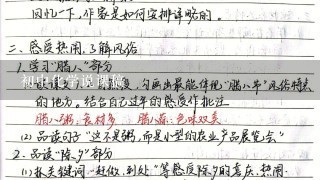 回忆一下,作家是如何安排详略的。
二、感受热闹,了解风俗
1. 学习“腊八”部分
初中化学说课稿
勾画出最能体现“腊八节”风俗特点
的地方。结合自己过年的感受作批注
腊八粥:食材多 腊八蒜:色味双美
(2) 品读句子“这不是粥,而是小型的农业产品展览会”
2. 品读“除夕”部分
(1) 抓关键词“赶做、到处”等感受除夕的喜庆、热闹.